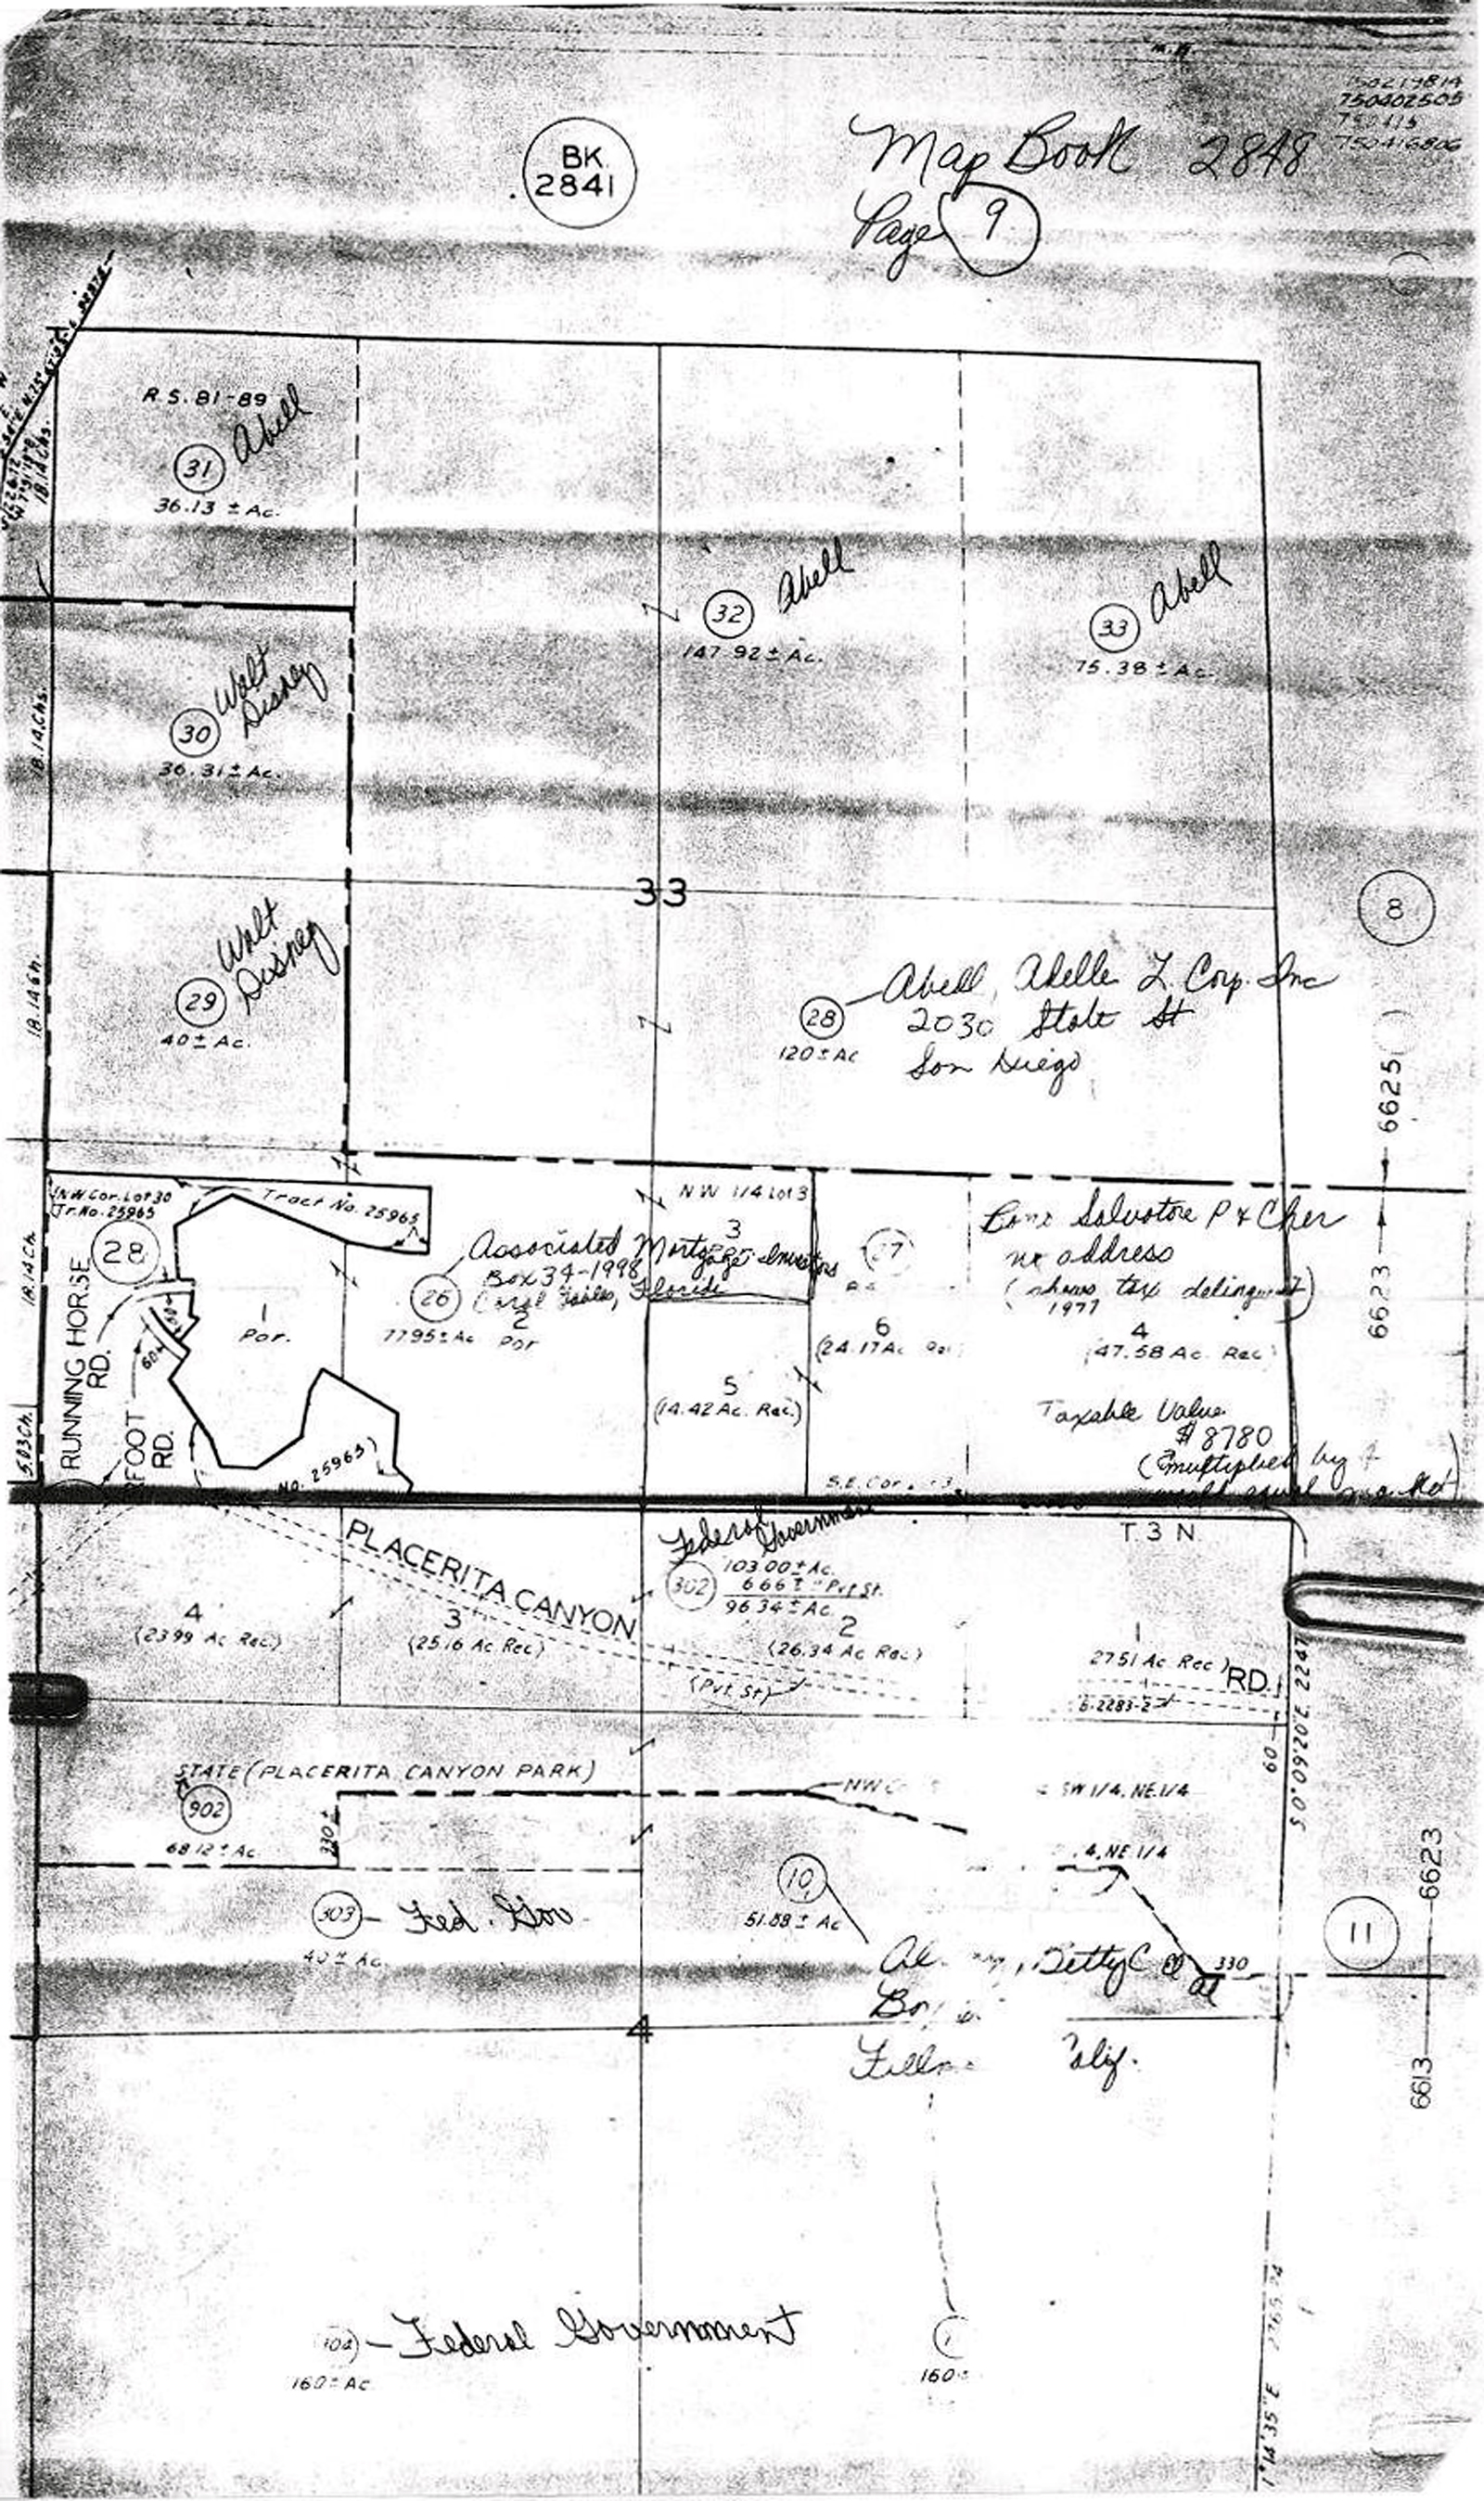 750402505
BK
2841
Map Book 2848
Page 9
R.S. 81-89
31 Abell
36.13 ± Ac.
18.14 Chs.
32 Abell
147.92 ± Ac.
33 Abell
75.38 ± Ac.
Walt
Disney
30
36.31 ± Ac.
18.14 Chs.
33
8
Walt
Disney
29
40 ± Ac.
18.14 Ch.
28 Abell, Adelle L Corp. Inc
2030 State St
San Diego
120 ± Ac
6625
NW Cor. Lot 30
Tr. No. 25965
Tract No. 25965
28
NW 1/4 Lot 3
3
Associated Mortgage Investors
Box 34-1998
Coral Gables, Florida
26
77.95 ± Ac
2
Por
Bono Salvatore P & Cher
no address
(shows tax delinquent)
1977
6623
18.14 Ch.
RUNNING HORSE
RD.
FOOT
RD.
60
1
Por.
6
(24.17 Ac
4
(47.58 Ac. Rec.)
5
(14.42 Ac. Rec.)
Taxable Value
$8780
(multiplied by
would equal
5.03 Ch.
No. 25965)
S.E. Cor.
Federal
Government
T 3 N
PLACERITA CANYON
302
103.00 ± Ac.
6.66 ± " Pvt St.
96.34 ± Ac.
4
(23.99 Ac Rec.)
3
(25.16 Ac Rec)
2
(26.34 Ac Rec)
1
27.51 Ac Rec)
RD.
(Pvt St)
6-2283-2
S 0°09'20"E 2247
60
STATE (PLACERITA CANYON PARK)
902
68.12 ± Ac
330
NW C
SW 1/4, NE 1/4
4, NE 1/4
10
51.88 ± Ac
303 - Fed. Gov.
40 ± Ac
11
6623
Betty C et al
330
Calif.
4
6613
- Federal Government
160 ± Ac
160
1°14'35"E